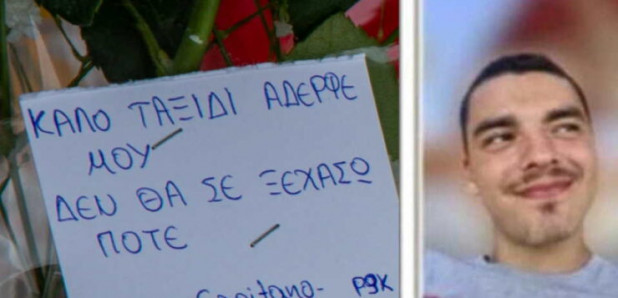 ΚΑΛΟ ΤΑΞΙΔΙ ΑΔΕΡΦΕ
ΜΟΥ
ΔΕΝ ΘΑ ΣΕ ΞΕΧΑΣΩ
ΠΟΤΕ
Capitano-